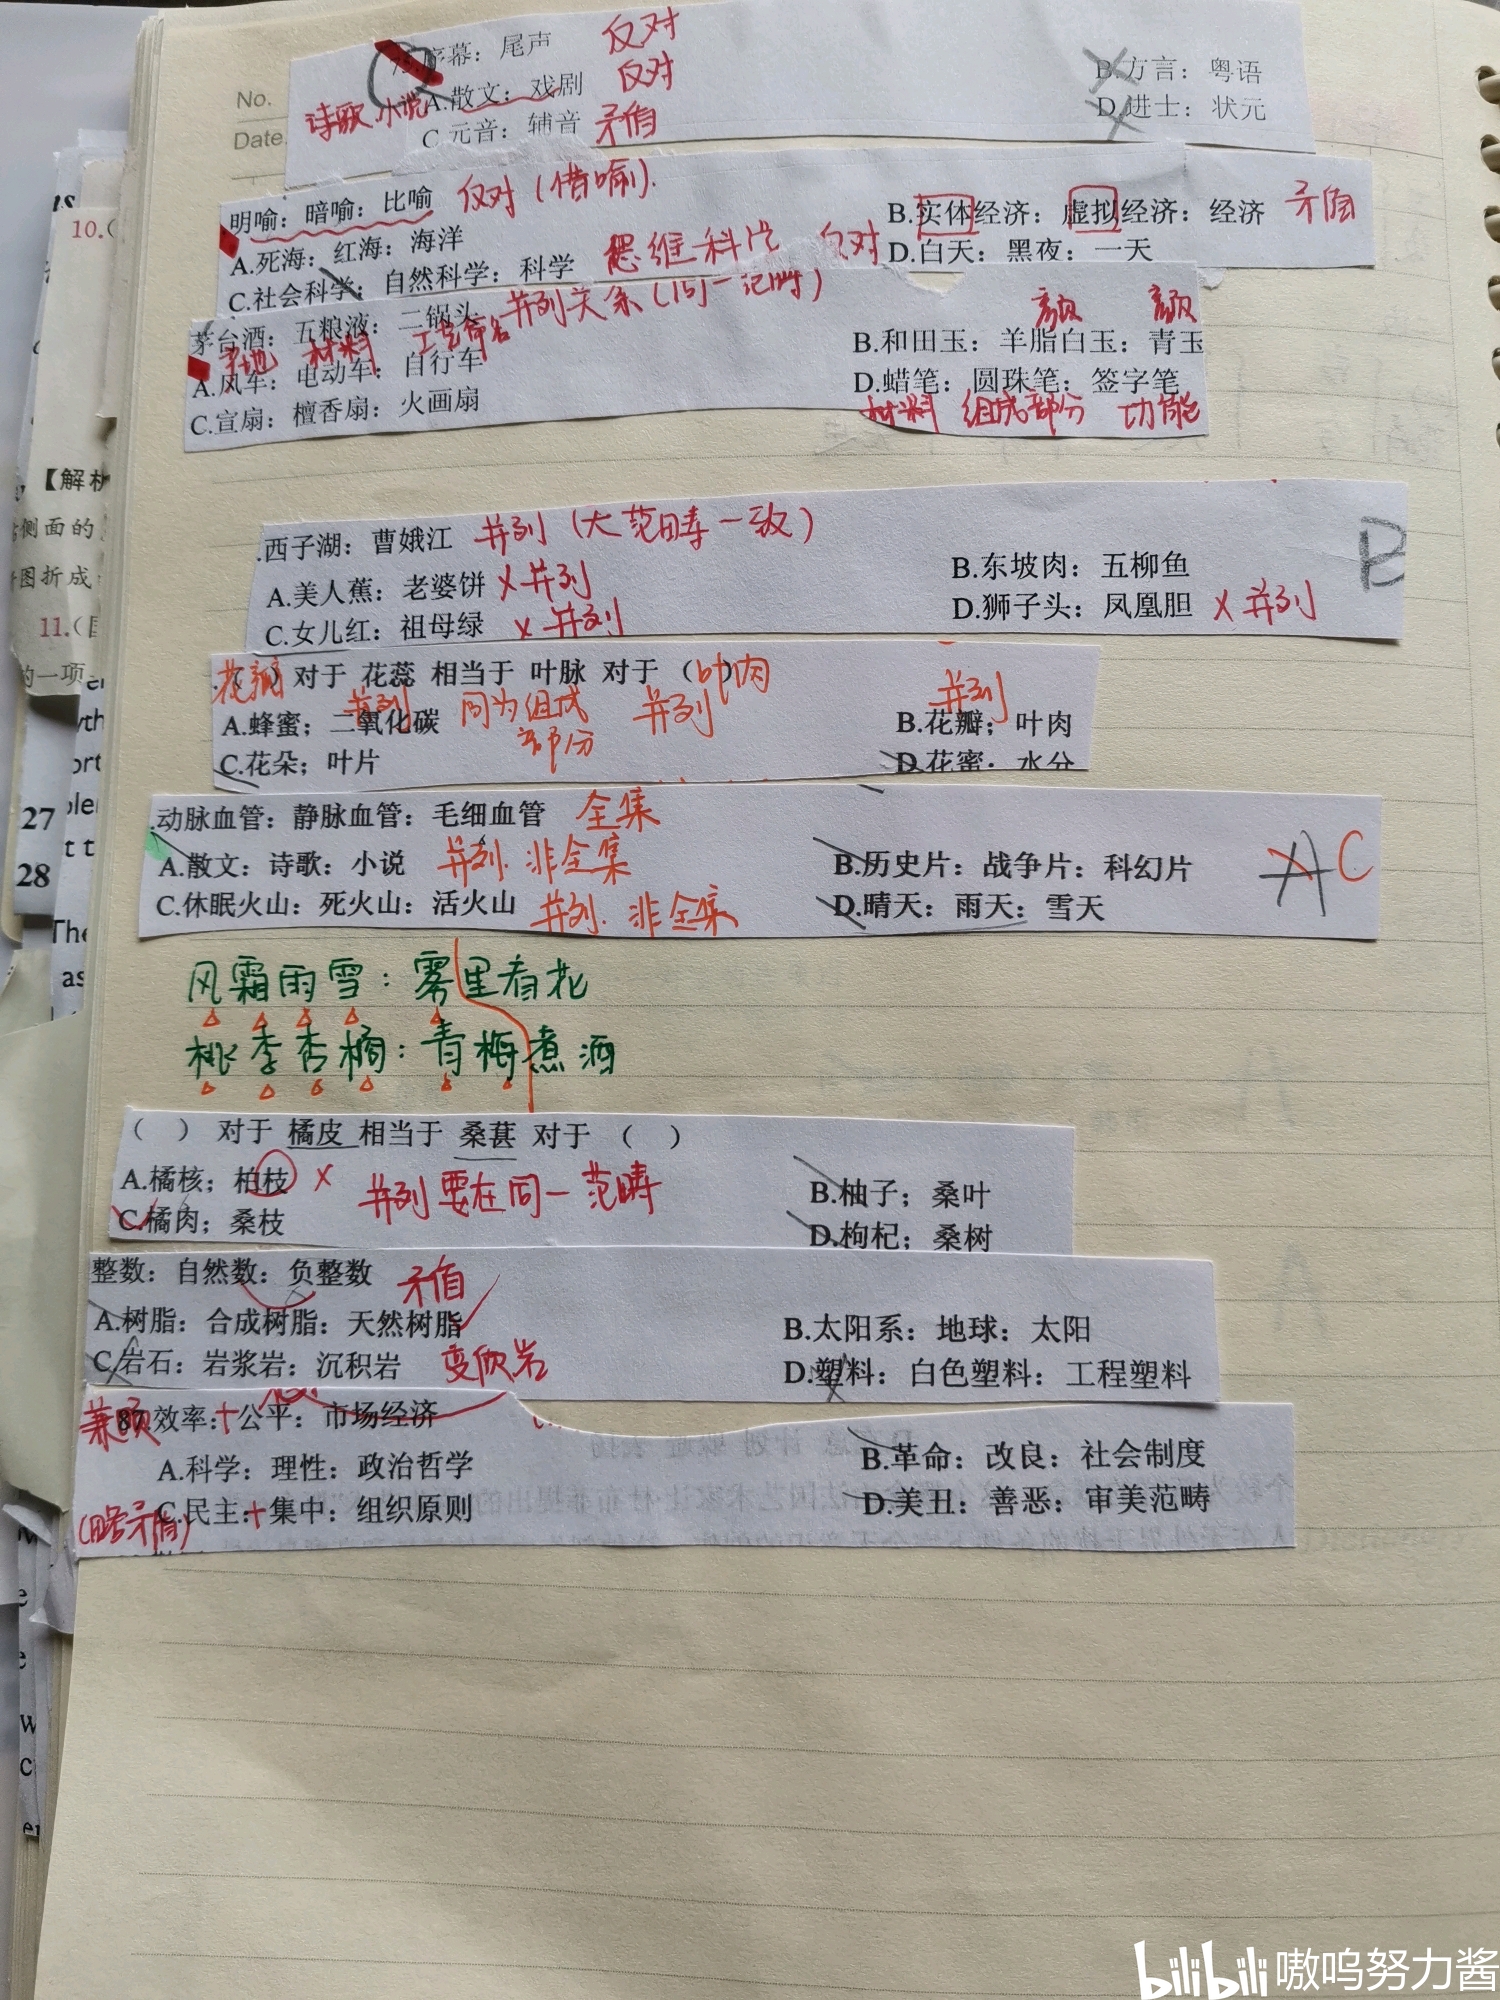 No.
Date.
序幕：尾声 反对
A.散文：戏剧 反对
B.方言：粤语
诗歌 小说
C.元音：辅音 矛盾
D.进士：状元
明喻：暗喻：比喻 反对（借喻）.
A.死海：红海：海洋
B.实体经济：虚拟经济：经济 矛盾
C.社会科学：自然科学：科学 思维科学 反对
D.白天：黑夜：一天
茅台酒：五粮液：二锅头 并列关系（同一范畴）
产地 材料 工艺命名
A.风车：电动车：自行车
B.和田玉：羊脂白玉：青玉
颜色 颜色
C.宣扇：檀香扇：火画扇
D.蜡笔：圆珠笔：签字笔
材料 组成部分 功能
西子湖：曹娥江 并列（大范畴一致）
A.美人蕉：老婆饼 x 并列
B.东坡肉：五柳鱼
B
C.女儿红：祖母绿 x 并列
D.狮子头：凤凰胆 x 并列
（花瓣）对于 花蕊 相当于 叶脉 对于（叶肉）
并列 同为组成部分 并列 并列
A.蜂蜜；二氧化碳
B.花瓣；叶肉
C.花朵；叶片
D.花蜜；水分
动脉血管：静脉血管：毛细血管 全集
A.散文：诗歌：小说 并列.非全集
B.历史片：战争片：科幻片
A C
C.休眠火山：死火山：活火山 并列.非全集
D.晴天：雨天：雪天
风霜雨雪：雾里看花
桃李杏橘：青梅煮酒
（ ）对于 橘皮 相当于 桑葚 对于（ ）
A.橘核；柏枝 x 并列要在同一范畴
B.柚子；桑叶
C.橘肉；桑枝
D.枸杞；桑树
整数：自然数：负整数 矛盾
A.树脂：合成树脂：天然树脂
B.太阳系：地球：太阳
C.岩石：岩浆岩：沉积岩 变质岩
D.塑料：白色塑料：工程塑料
兼顾
87.效率：+公平：市场经济
A.科学：理性：政治哲学
B.革命：改良：社会制度
C.民主：+集中：组织原则
D.美丑：善恶：审美范畴
(略矛盾)
【解析
10.(
侧面的
图折成
11.(
的一项
27
28
The
as
bilibili 嗷呜努力酱